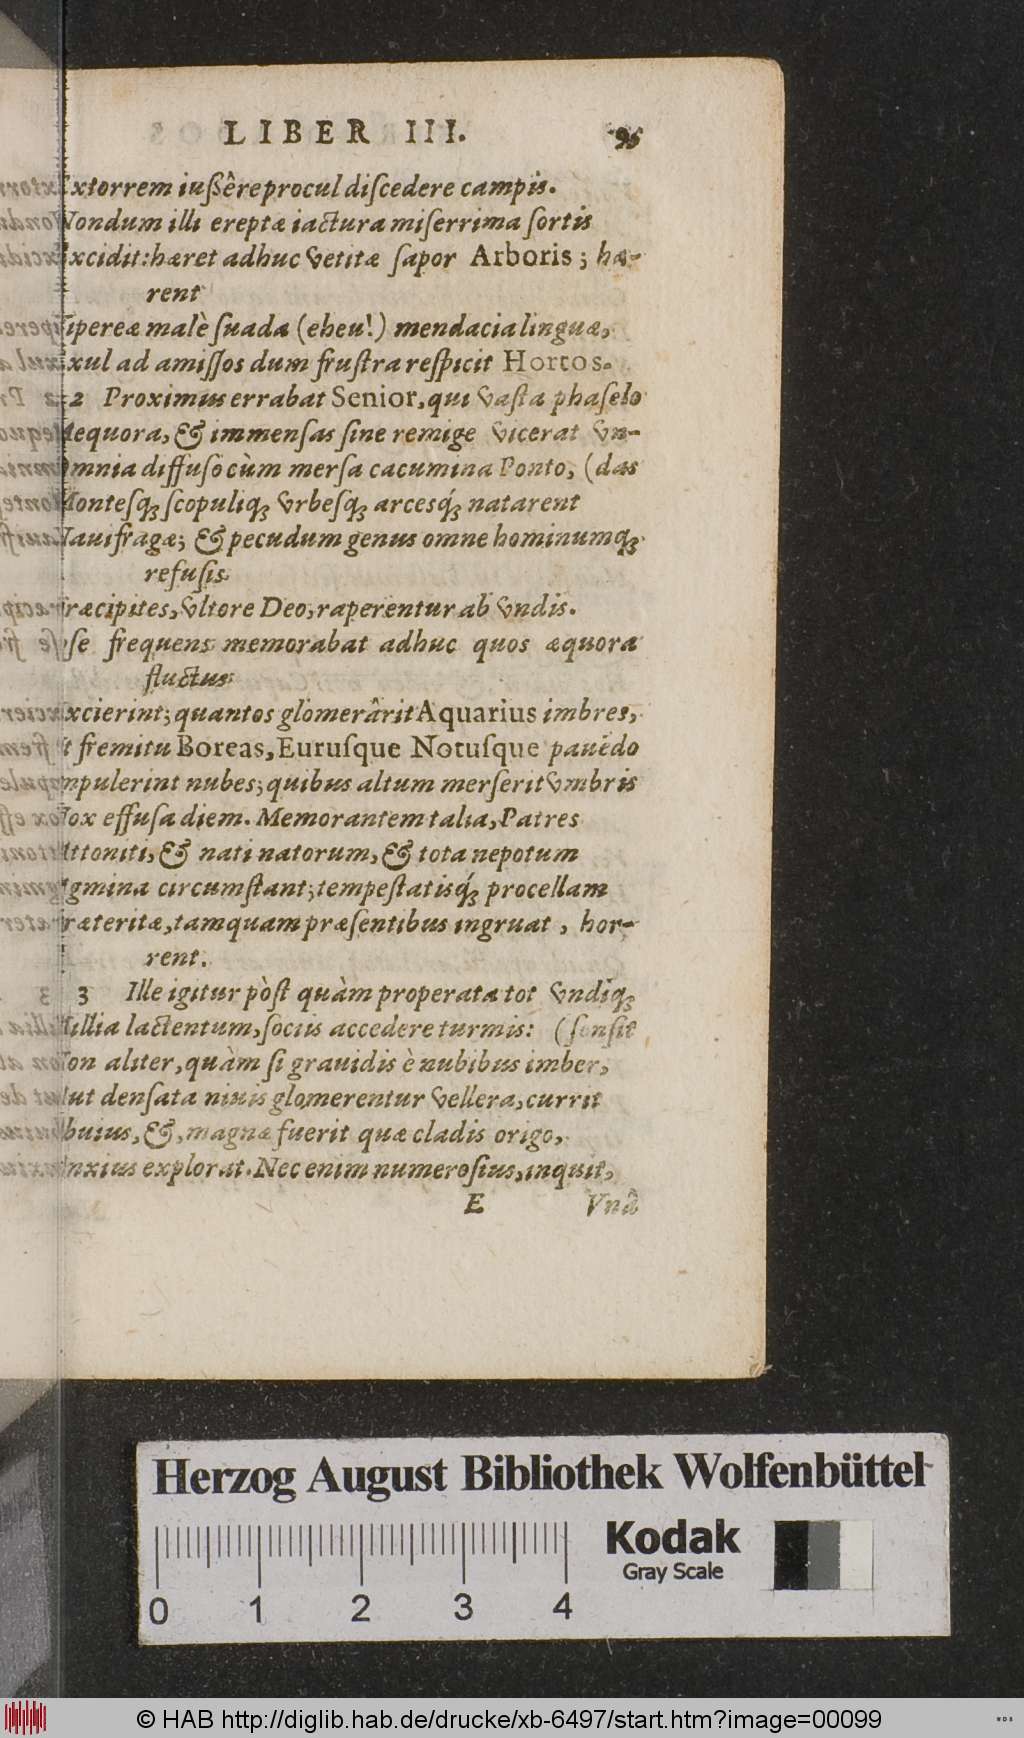 LIBER III. 95
Extorrem iußêre procul diſcedere campis.
Nondum illi ereptæ iactura miſerrima ſortis
Excidit: hæret adhuc vetitæ ſapor Arboris; hæ-
rent
Vipereæ malè ſuada (eheu!) mendacia linguæ,
Exul ad amiſſos dum fruſtra reſpicit Hortos.
2 Proximus errabat Senior, qui vaſta phaſelo
Aequora, & immenſas ſine remige vicerat vn-
Omnia diffuſo cùm merſa cacumina Ponto, (das
Monteſq; ſcopuliq; vrbeſq; arceſq́; natarent
Nauifragæ; & pecudum genus omne hominumq;
refuſis
Præcipites, vltore Deo, raperentur ab vndis.
ſſe frequens memorabat adhuc quos æquora
fluctus
Excierint; quantos glomerârit Aquarius imbres,
Et fremitu Boreas, Euruſque Notuſque pauēdo
Impulerint nubes; quibus altum merſerit vmbris
Nox effuſa diem. Memorantem talia, Patres
Attoniti, & nati natorum, & tota nepotum
Agmina circumſtant; tempeſtatisq́; procellam
Præteritæ, tamquam præſentibus ingruat, hor-
rent.
3 Ille igitur pòſt quàm properata tot vndiq;
Millia lactentum, ſociis accedere turmis: (ſenſit
Non aliter, quàm ſi grauidis è nubibus imber,
Aut denſata niuis glomerentur vellera, currit
Obuius, &, magnæ fuerit quæ cladis origo,
Anxius explorat. Nec enim numeroſius, inquit,
E Vnâ
Herzog August Bibliothek Wolfenbüttel
Kodak
Gray Scale
0 1 2 3 4
© HAB http://diglib.hab.de/drucke/xb-6497/start.htm?image=00099